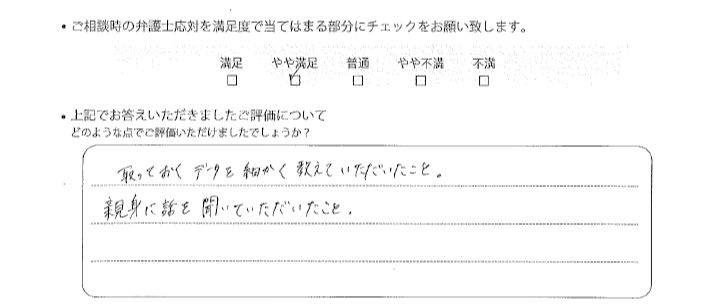 • ご相談時の弁護士応対を満足度で当てはまる部分にチェックをお願い致します。
満足 やや満足 普通 やや不満 不満
□ ☑ □ □ □
• 上記でお答えいただきましたご評価について
どのような点でご評価いただけましたでしょうか?
取っておくデータを細かく教えていただいたこと。
親身に話を聞いていただいたこと。